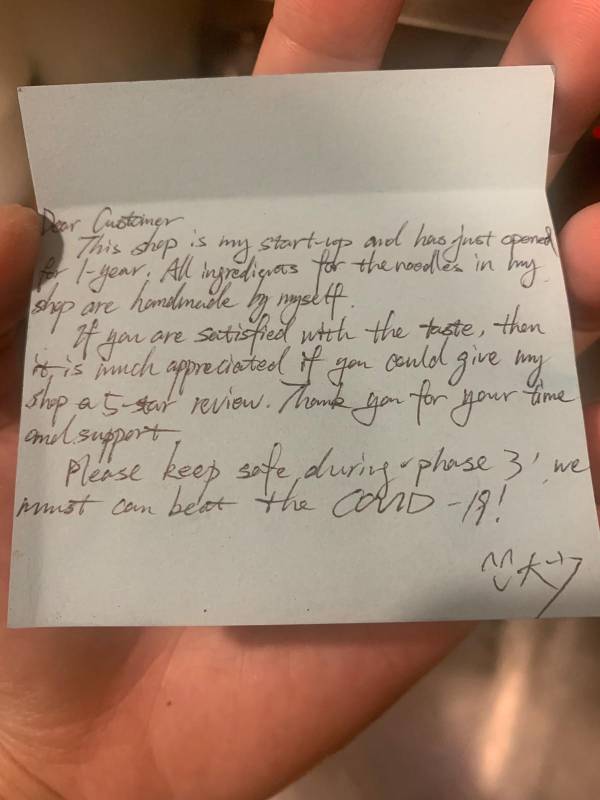 Dear Customer
This shop is my start-up and has just opened
for 1-year. All ingredients for the noodles in my
shop are handmade by myself.
If you are satisfied with the taste, then
it is much appreciated if you could give my
shop a 5-star review. Thank you for your time
and support.
Please keep safe during 'phase 3', we
must can beat the COVID-19!